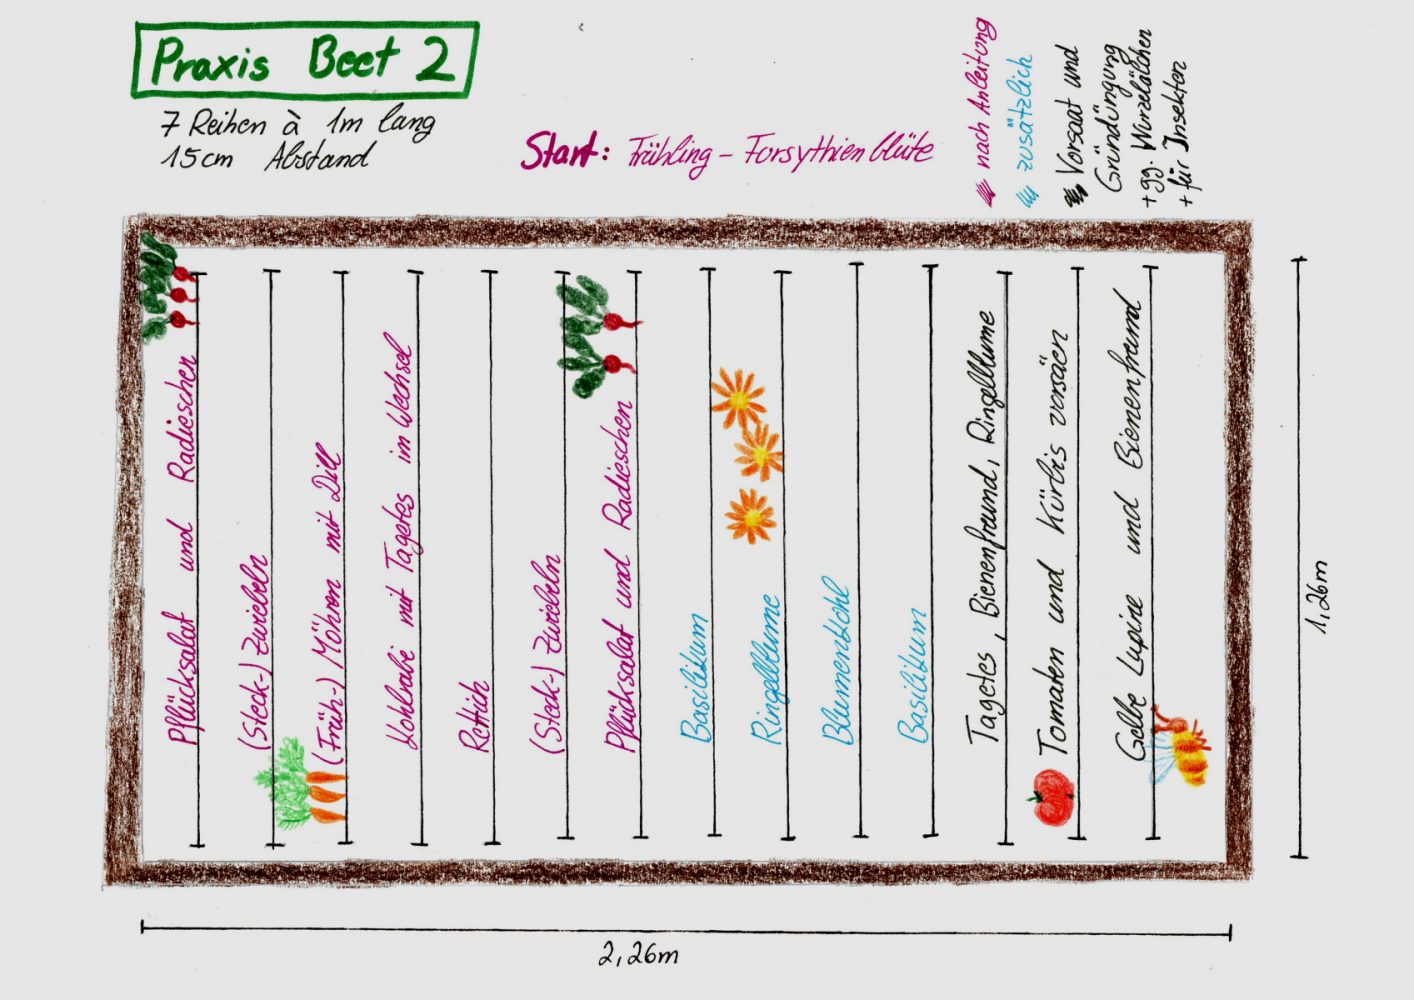 Praxis Beet 2
7 Reihen à 1m lang
15cm Abstand
Start: Frühling - Forsythienblüte
nach Anleitung
zusätzlich
Vorsaat und
Gründüngung
+ gg. Wurzelälchen
+ für Insekten
Pflücksalat und Radieschen
(Steck-) Zwiebeln
(Früh-) Möhren mit Dill
Kohlrabi mit Tagetes im Wechsel
Rettich
(Steck-) Zwiebeln
Pflücksalat und Radieschen
Basilikum
Ringelblume
Blumenkohl
Basilikum
Tagetes, Bienenfreund, Ringelblume
Tomaten und Kürbis vorsäen
Gelbe Lupine und Bienenfreund
1,26m
2,26m